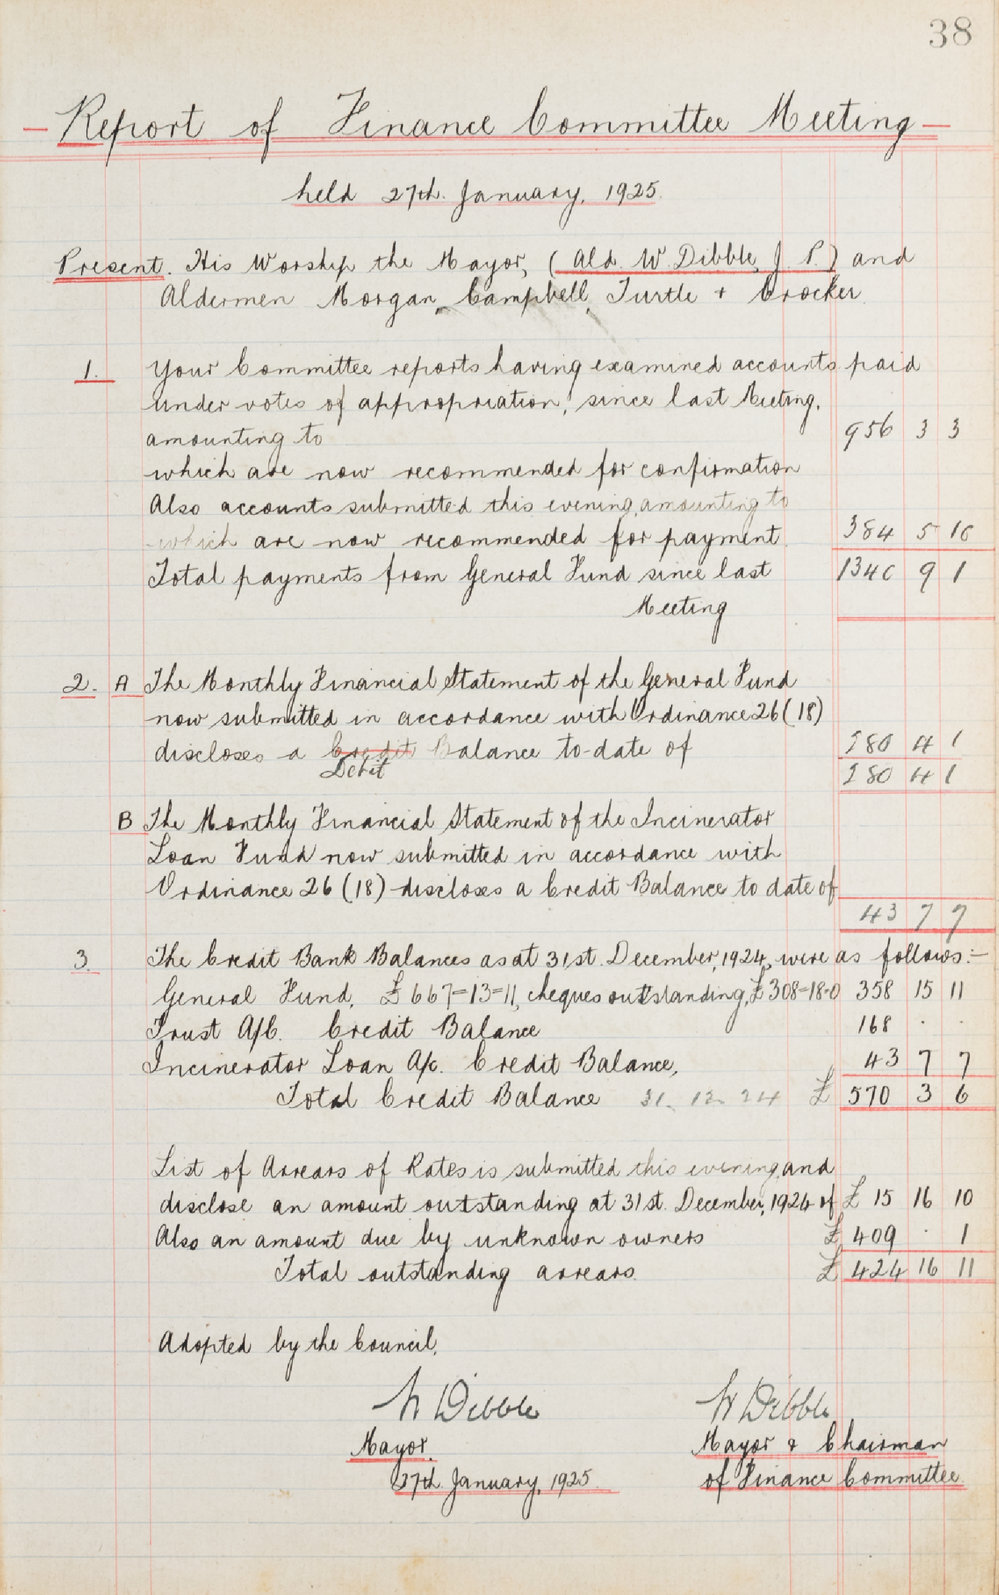 38
Report of Finance Committee Meeting
held 27th. January, 1925.
Present. His Worship the Mayor, (Ald. W. Dibble, J. P.) and
Aldermen Morgan, Campbell, Turtle + Crocker.
1. Your Committee reports having examined accounts paid
under votes of appropriation, since last Meeting,
amounting to 956 3 3
which are now recommended for confirmation
Also accounts submitted this evening, amounting to
which are now recommended for payment. 384 5 10
Total payments from General Fund since last 1340 9 1
Meeting
2. A The Monthly Financial Statement of the General Fund
now submitted in accordance with Ordinance 26 (18)
discloses a Credit Balance to-date of 280 4 1
Debit 280 4 1
B The Monthly Financial Statement of the Incinerator
Loan Fund now submitted in accordance with
Ordinance 26 (18) discloses a Credit Balance to date of
43 7 7
3. The Credit Bank Balances as at 31st. December, 1924, were as follows:-
General Fund, £667=13=11, cheques outstanding, £308=18=0 358 15 11
Trust A/C. Credit Balance 168 . .
Incinerator Loan A/c. Credit Balance, 43 7 7
Total Credit Balance 31. 12. 24 £ 570 3 6
List of Arrears of Rates is submitted this evening, and
disclose an amount outstanding at 31st. December, 1924 of £ 15 16 10
Also an amount due by unknown owners £ 409 . 1
Total outstanding arrears. £ 424 16 11
Adopted by the Council.
W Dibble W Dibble
Mayor. Mayor & Chairman
27th January, 1925. of Finance Committee.